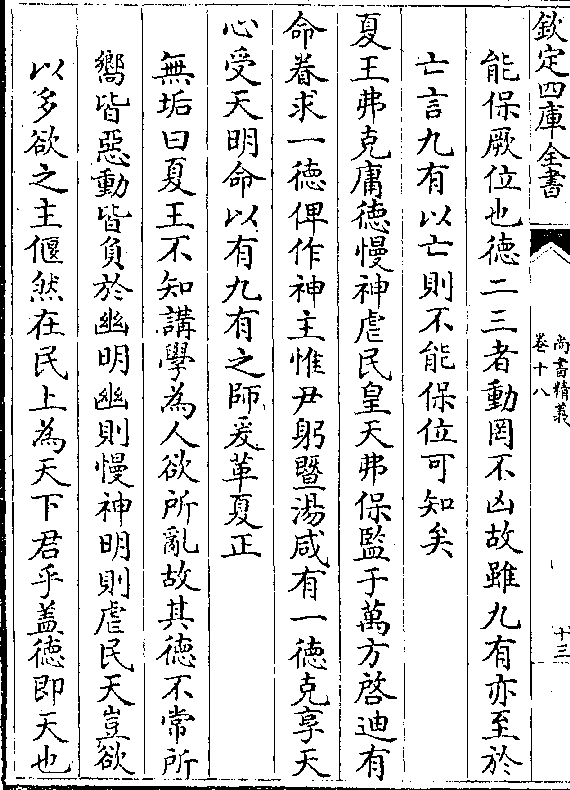 欽定四庫全書
尚書精義
卷十八
十三
能保厥位也德二三者動罔不凶故雖九有亦至於
亡言九有以亡則不能保位可知矣
夏王弗克庸德慢神虐民皇天弗保監于萬方啓迪有
命眷求一德俾作神主惟尹躬暨湯咸有一德克享天
心受天明命以有九有之師爰革夏正
無垢曰夏王不知講學為人欲所亂故其德不常所
嚮皆惡動皆負於幽明幽則慢神明則虐民天豈欲
以多欲之主偃然在民上為天下君乎盖德即天也